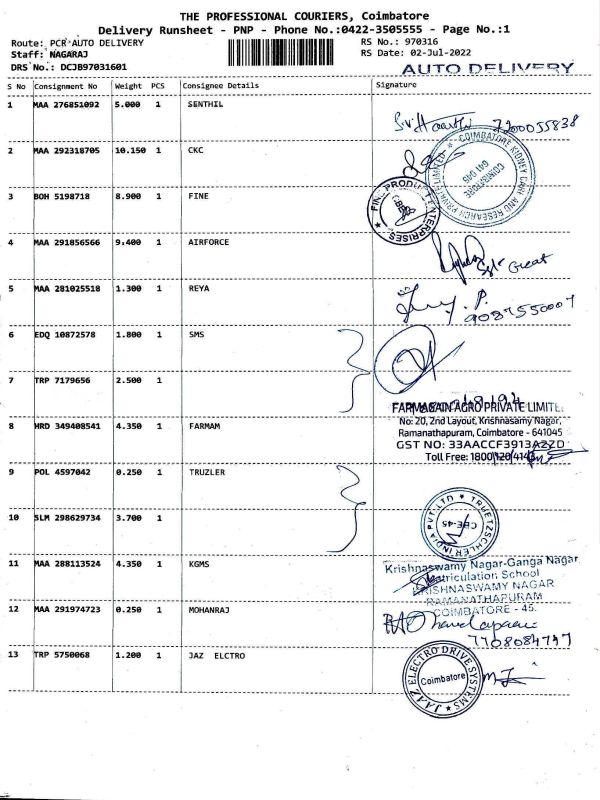 THE PROFESSIONAL COURIERS, Coimbatore
Delivery Runsheet - PNP - Phone No.:0422-3505555 - Page No.:1
Route: PCR AUTO DELIVERY RS No.: 970316
Staff: NAGARAJ RS Date: 02-Jul-2022
DRS No.: DCJB97031601
AUTO DELIVERY
S No Consignment No Weight PCS Consignee Details Signature
1 MAA 276851092 5.000 1 SENTHIL
7200055838
2 MAA 292318705 10.150 1 CKC
COIMBATORE KIDNEY CARE AND RESEARCH PRIVATE LIMITED
COIMBATORE
641 045
3 BOH 5198718 8.900 1 FINE
FINE PRODUCT ENTERPRISES
4 MAA 291856566 9.400 1 AIRFORCE
Great
5 MAA 281025518 1.300 1 REYA
P.
9087550007
6 EDQ 10872578 1.800 1 SMS
7 TRP 7179656 2.500 1
FARMAGAIN AGRO PRIVATE LIMITE
8 HRD 349408541 4.350 1 FARMAM
No: 20, 2nd Layout, Krishnasamy Nagar,
Ramanathapuram, Coimbatore - 641045
GST NO: 33AACCF3913A2ZD
Toll Free: 1800
9 POL 4597042 0.250 1 TRUZLER
10 SLM 298629734 3.700 1
TRUETZSCHLER INDIA PVT. LTD
CBE-45
11 MAA 288113524 4.350 1 KGMS
Krishnaswamy Nagar-Ganga Nagar
Matriculation School
KRISHNASWAMY NAGAR
RAMANATHAPURAM
COIMBATORE - 45.
12 MAA 291974723 0.250 1 MOHANRAJ
7708084747
13 TRP 5750068 1.200 1 JAZ ELCTRO
JAAZ ELECTRO DRIVE SYSTEMS
Coimbatore